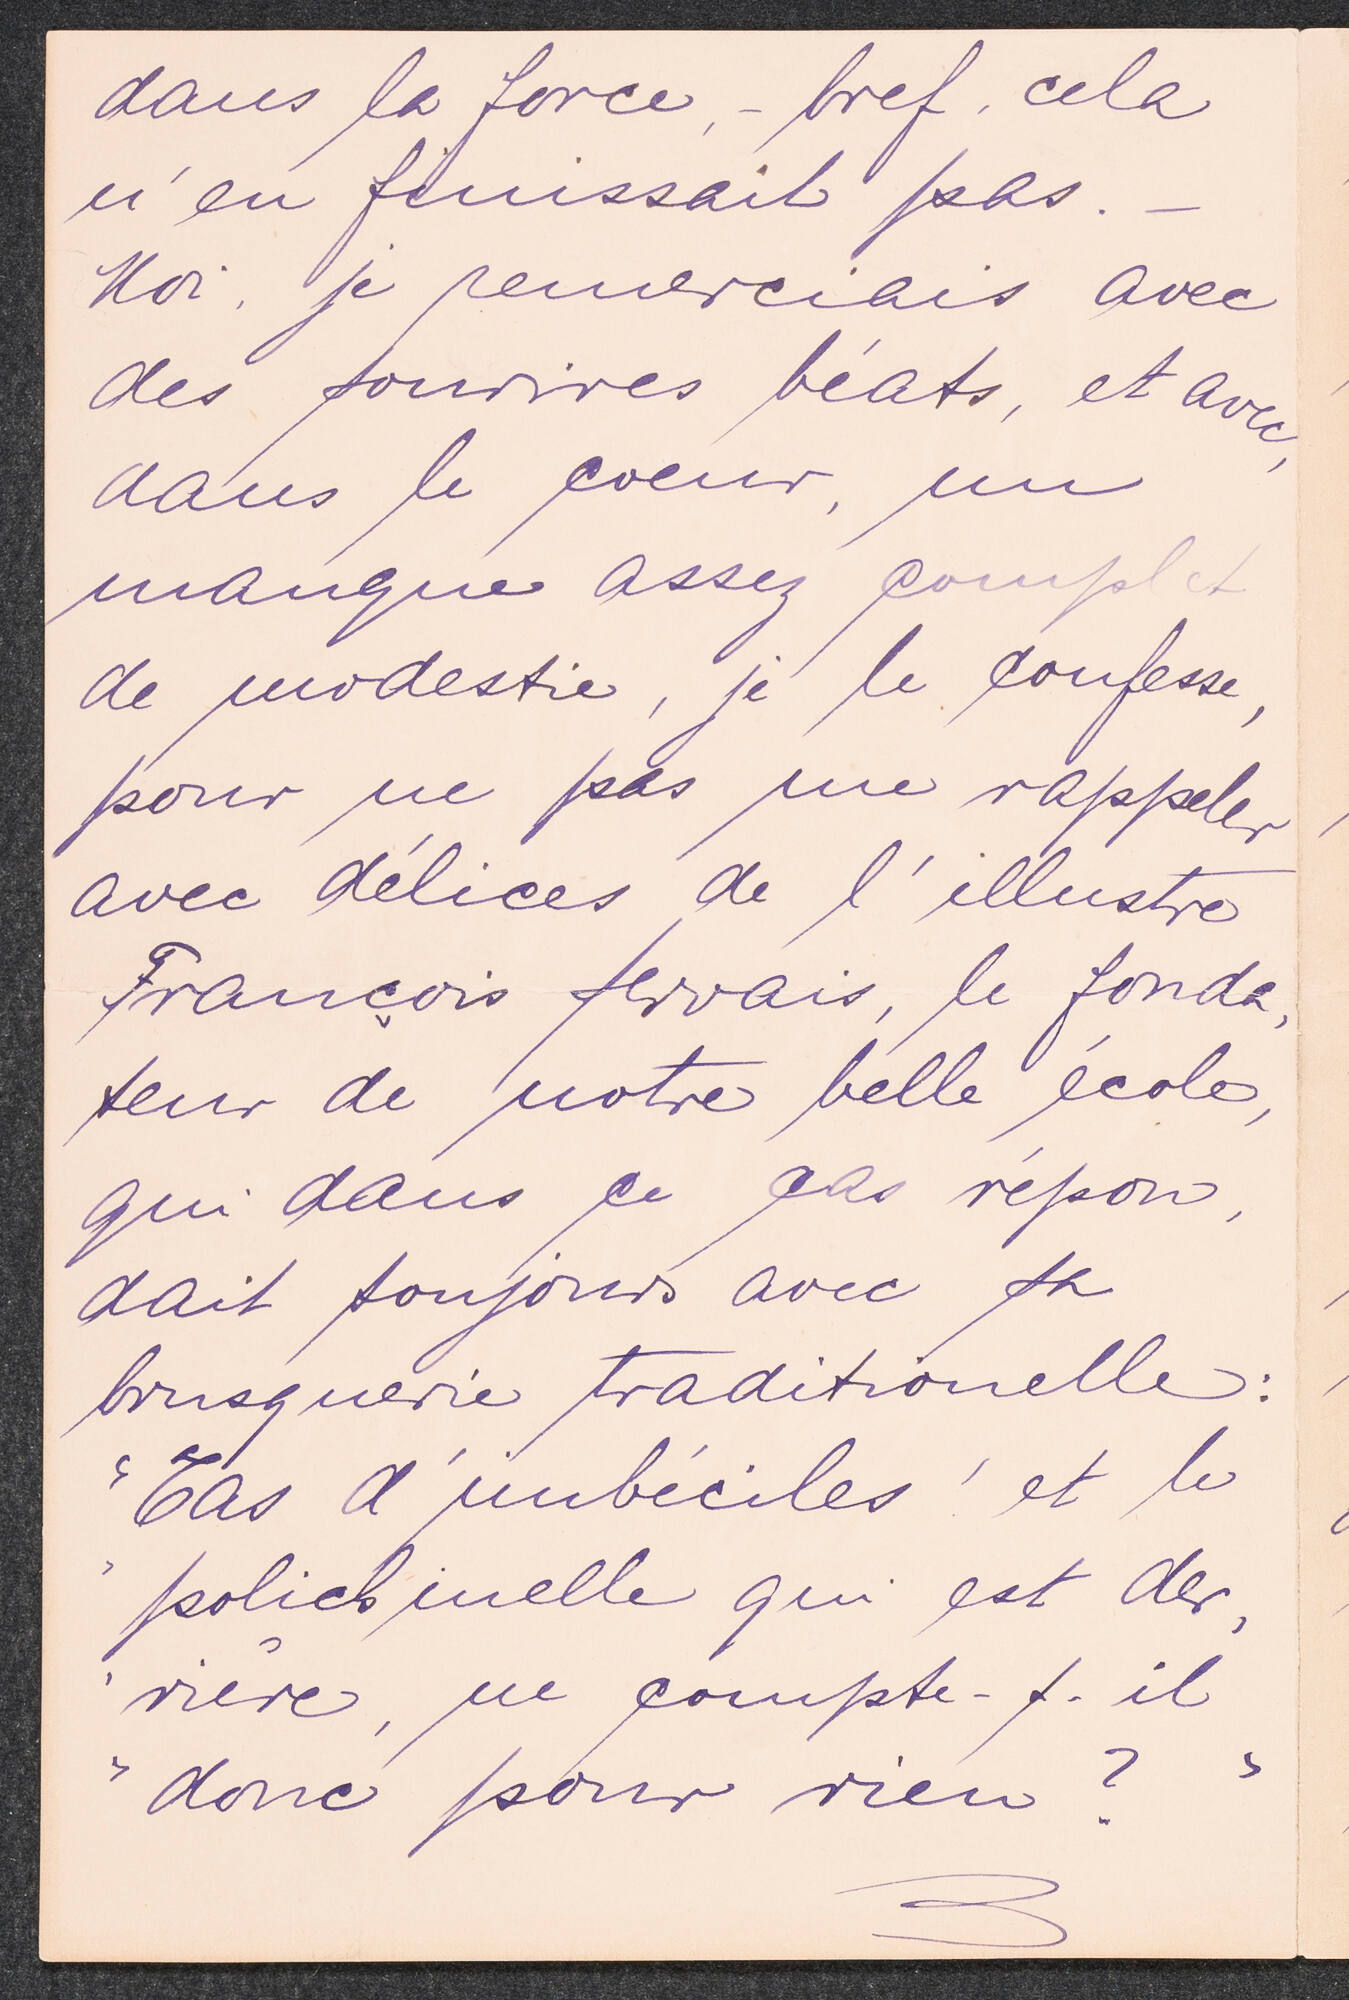 dans la force, – bref, cela
n'en finissait pas. –
Moi, je remerciais avec
des sourires béats, et avec,
dans le coeur, un
manque assez complet
de modestie, je le confesse,
pour ne pas me rappeler
avec délices de l'illustre
François Servais, le fonda,
teur de notre belle école,
qui dans ce cas répon,
dait toujours avec sa
brusquerie traditionelle :
"Tas d'imbéciles ! et le
" polichinelle qui est der,
" rière, ne compte-t-il
" donc pour rien ? "